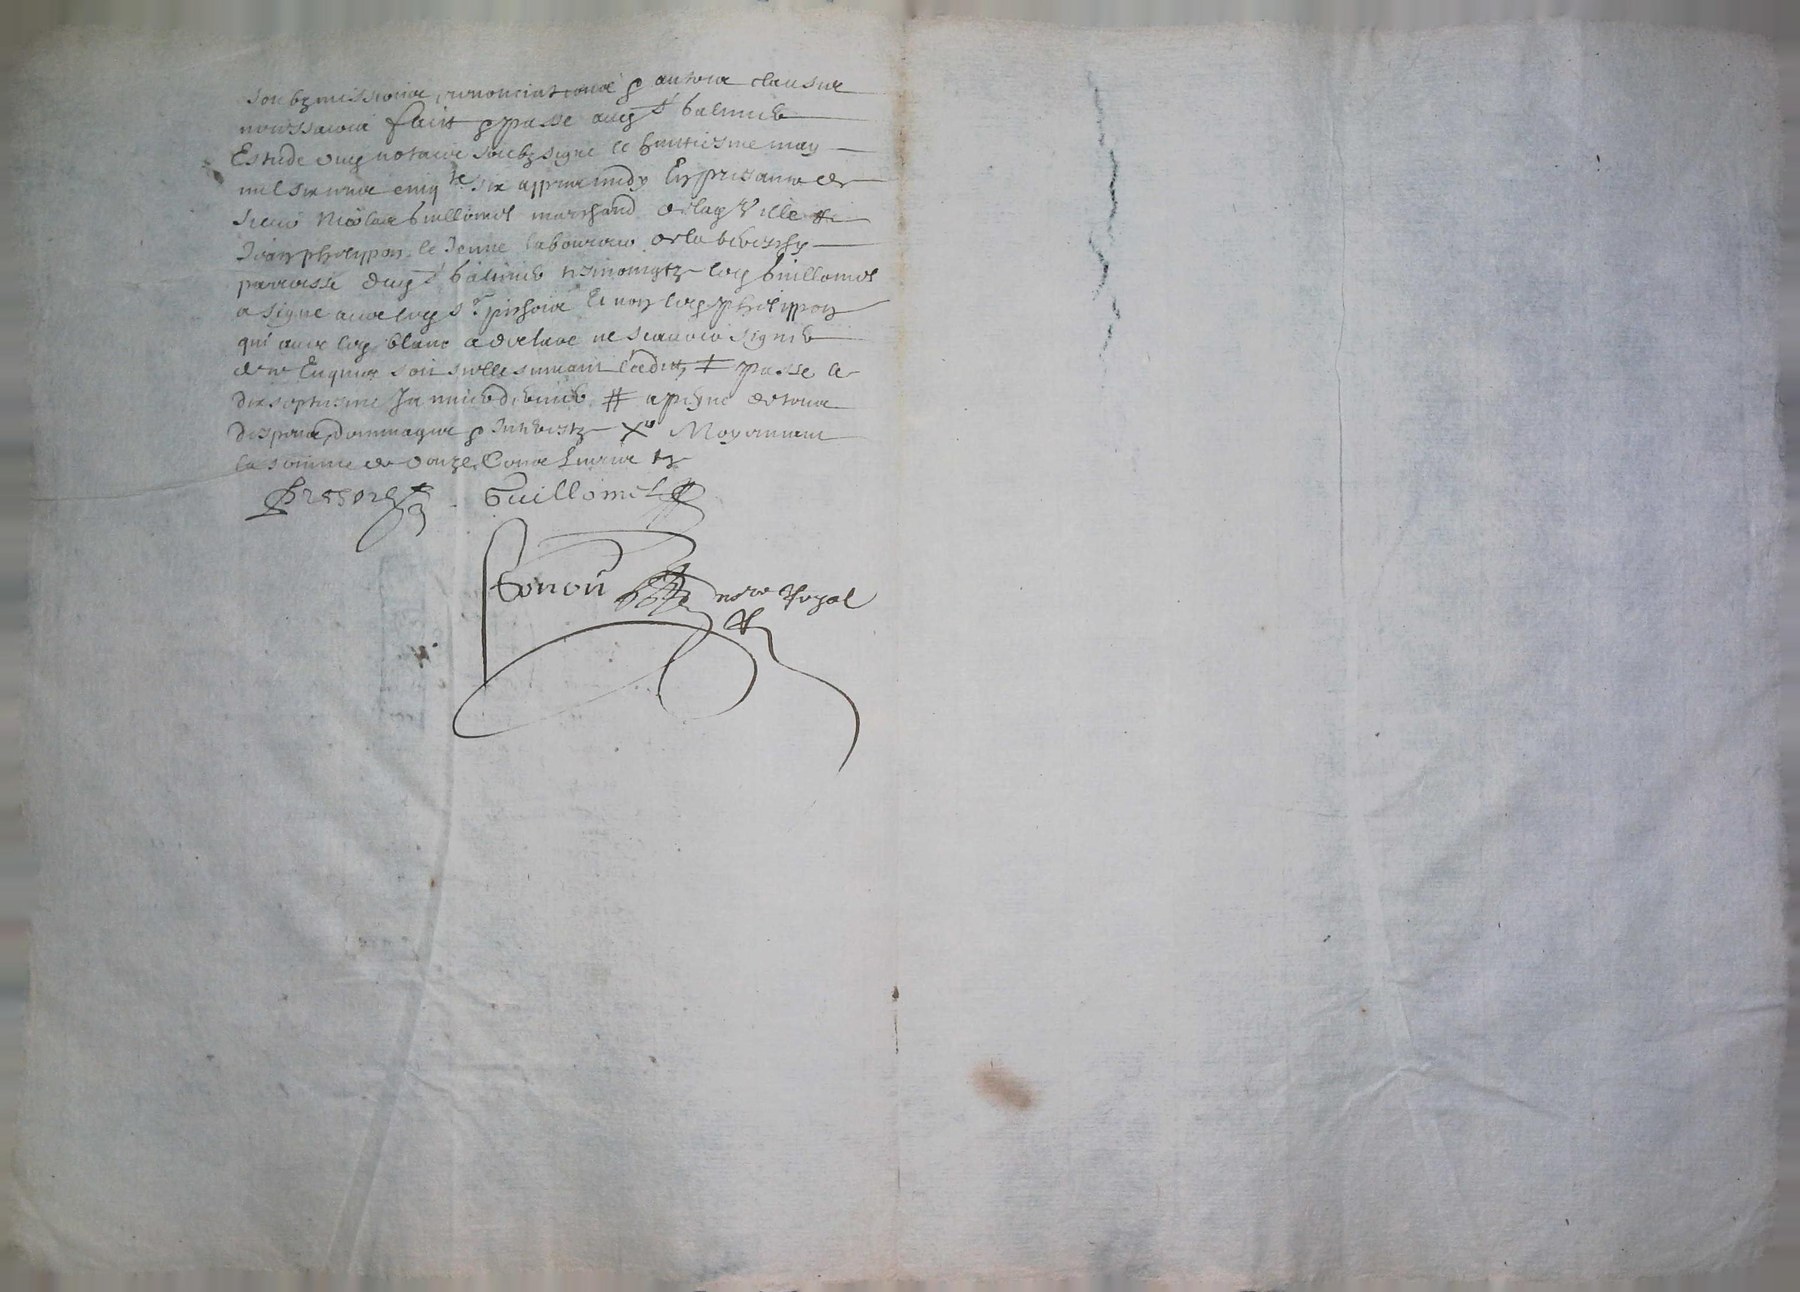 soubzmissions renonciations & autres clauses
necessaires faict & passe aud St Galmier
Estude dud notaire soubzsigne le huictiesme may
mil six cens cinq te six appres midy En presance de
sieur Nicolas Guillomet marchand de lad Ville &
Jean phelippon le Jeune laboureur de la
parroisse dud St Galmier tesmoingtz led Guillomet
a signe avec led Sr Et non led phelippon
qui avec led blanc a declare ne scavoir signer
de ce Enquis soit scelle suivant l'edict # passe le
dixseptiesme Janvier dernier # a peyne de tous
despens dommages & Interestz X Moyennant
la somme de douze Cens livres tz
Guillomet
Gonon nore Royal